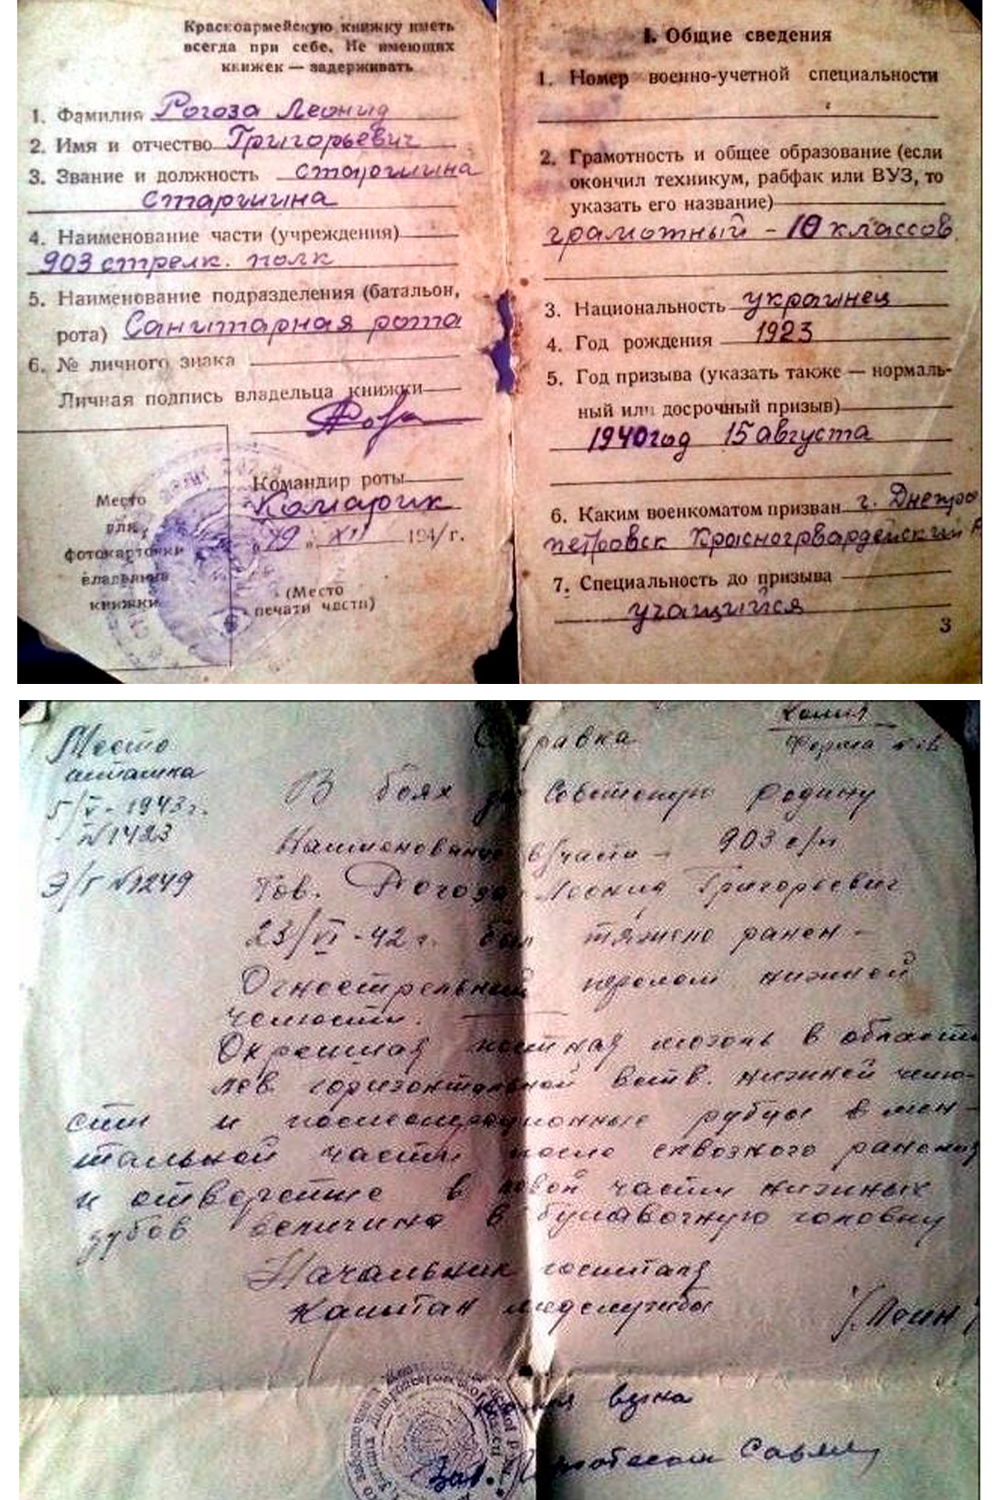 Красноармейскую книжку иметь
всегда при себе. Не имеющих
книжек — задерживать
1. Фамилия Рогоза Леонид
2. Имя и отчество Григорьевич
3. Звание и должность старшина
старшина
4. Наименование части (учреждения)
903 стрелк. полк
5. Наименование подразделения (батальон,
рота) Санитарная рота
6. № личного знака
Личная подпись владельца книжки
Командир роты
Комарик
"19" XII 194/г.
Место
для
фотокарточки
владельца
книжки
(Место
печати части)
I. Общие сведения
1. Номер военно-учетной специальности
2. Грамотность и общее образование (если
окончил техникум, рабфак или ВУЗ, то
указать его название)
грамотный - 10 классов
3. Национальность украинец
4. Год рождения 1923
5. Год призыва (указать также — нормаль-
ный или досрочный призыв)
1940 год 15 августа
6. Каким военкоматом призван г. Днепро
петровск Красногвардейский
7. Специальность до призыва
учащийся
3
Место
штампа
5/V-1943г.
№1423
Э/Г №1249
Копия
Форма
Справка
В боях за Советскую родину
Наименование в/части - 903 с/п
Тов. Рогоза Леонид Григорьевич
23/VI-42 г. был тяжело ранен -
Огнестрельный перелом нижней
челюсти.
костная мозоль в области
лев. горизонтальной ветв. нижней челю-
сти и послеоперационные рубцы в мен-
тальной части после сквозного ранения
и отверстие в левой части нижних
зубов величина в булавочную головку
Начальник госпиталя
Капитан медслужбы
верна
Зав.